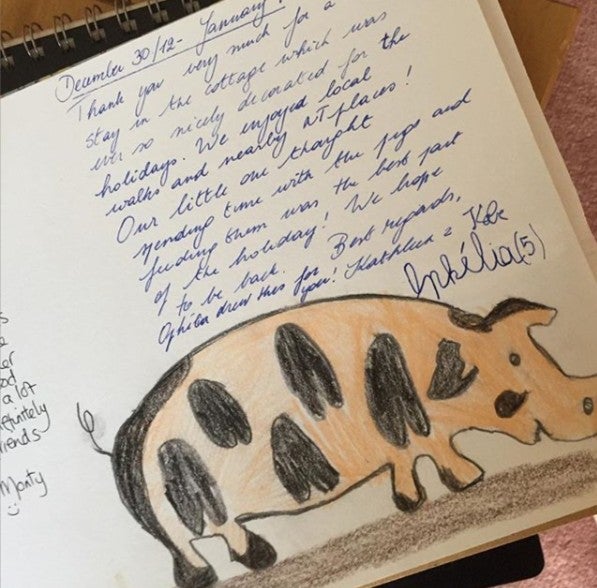 December 30/12 - January
Thank you very much for a
stay in the cottage which was
ever so nicely decorated for the
holidays. We enjoyed local
walks and nearby NT places!
Our little one thought
spending time with the pigs and
feeding them was the best part
of the holiday! We hope
to be back. Best regards,
Ophélia drew this for you! Kathleen & Kobe
Ophélia (5)
a lot
definitely
friends
Monty